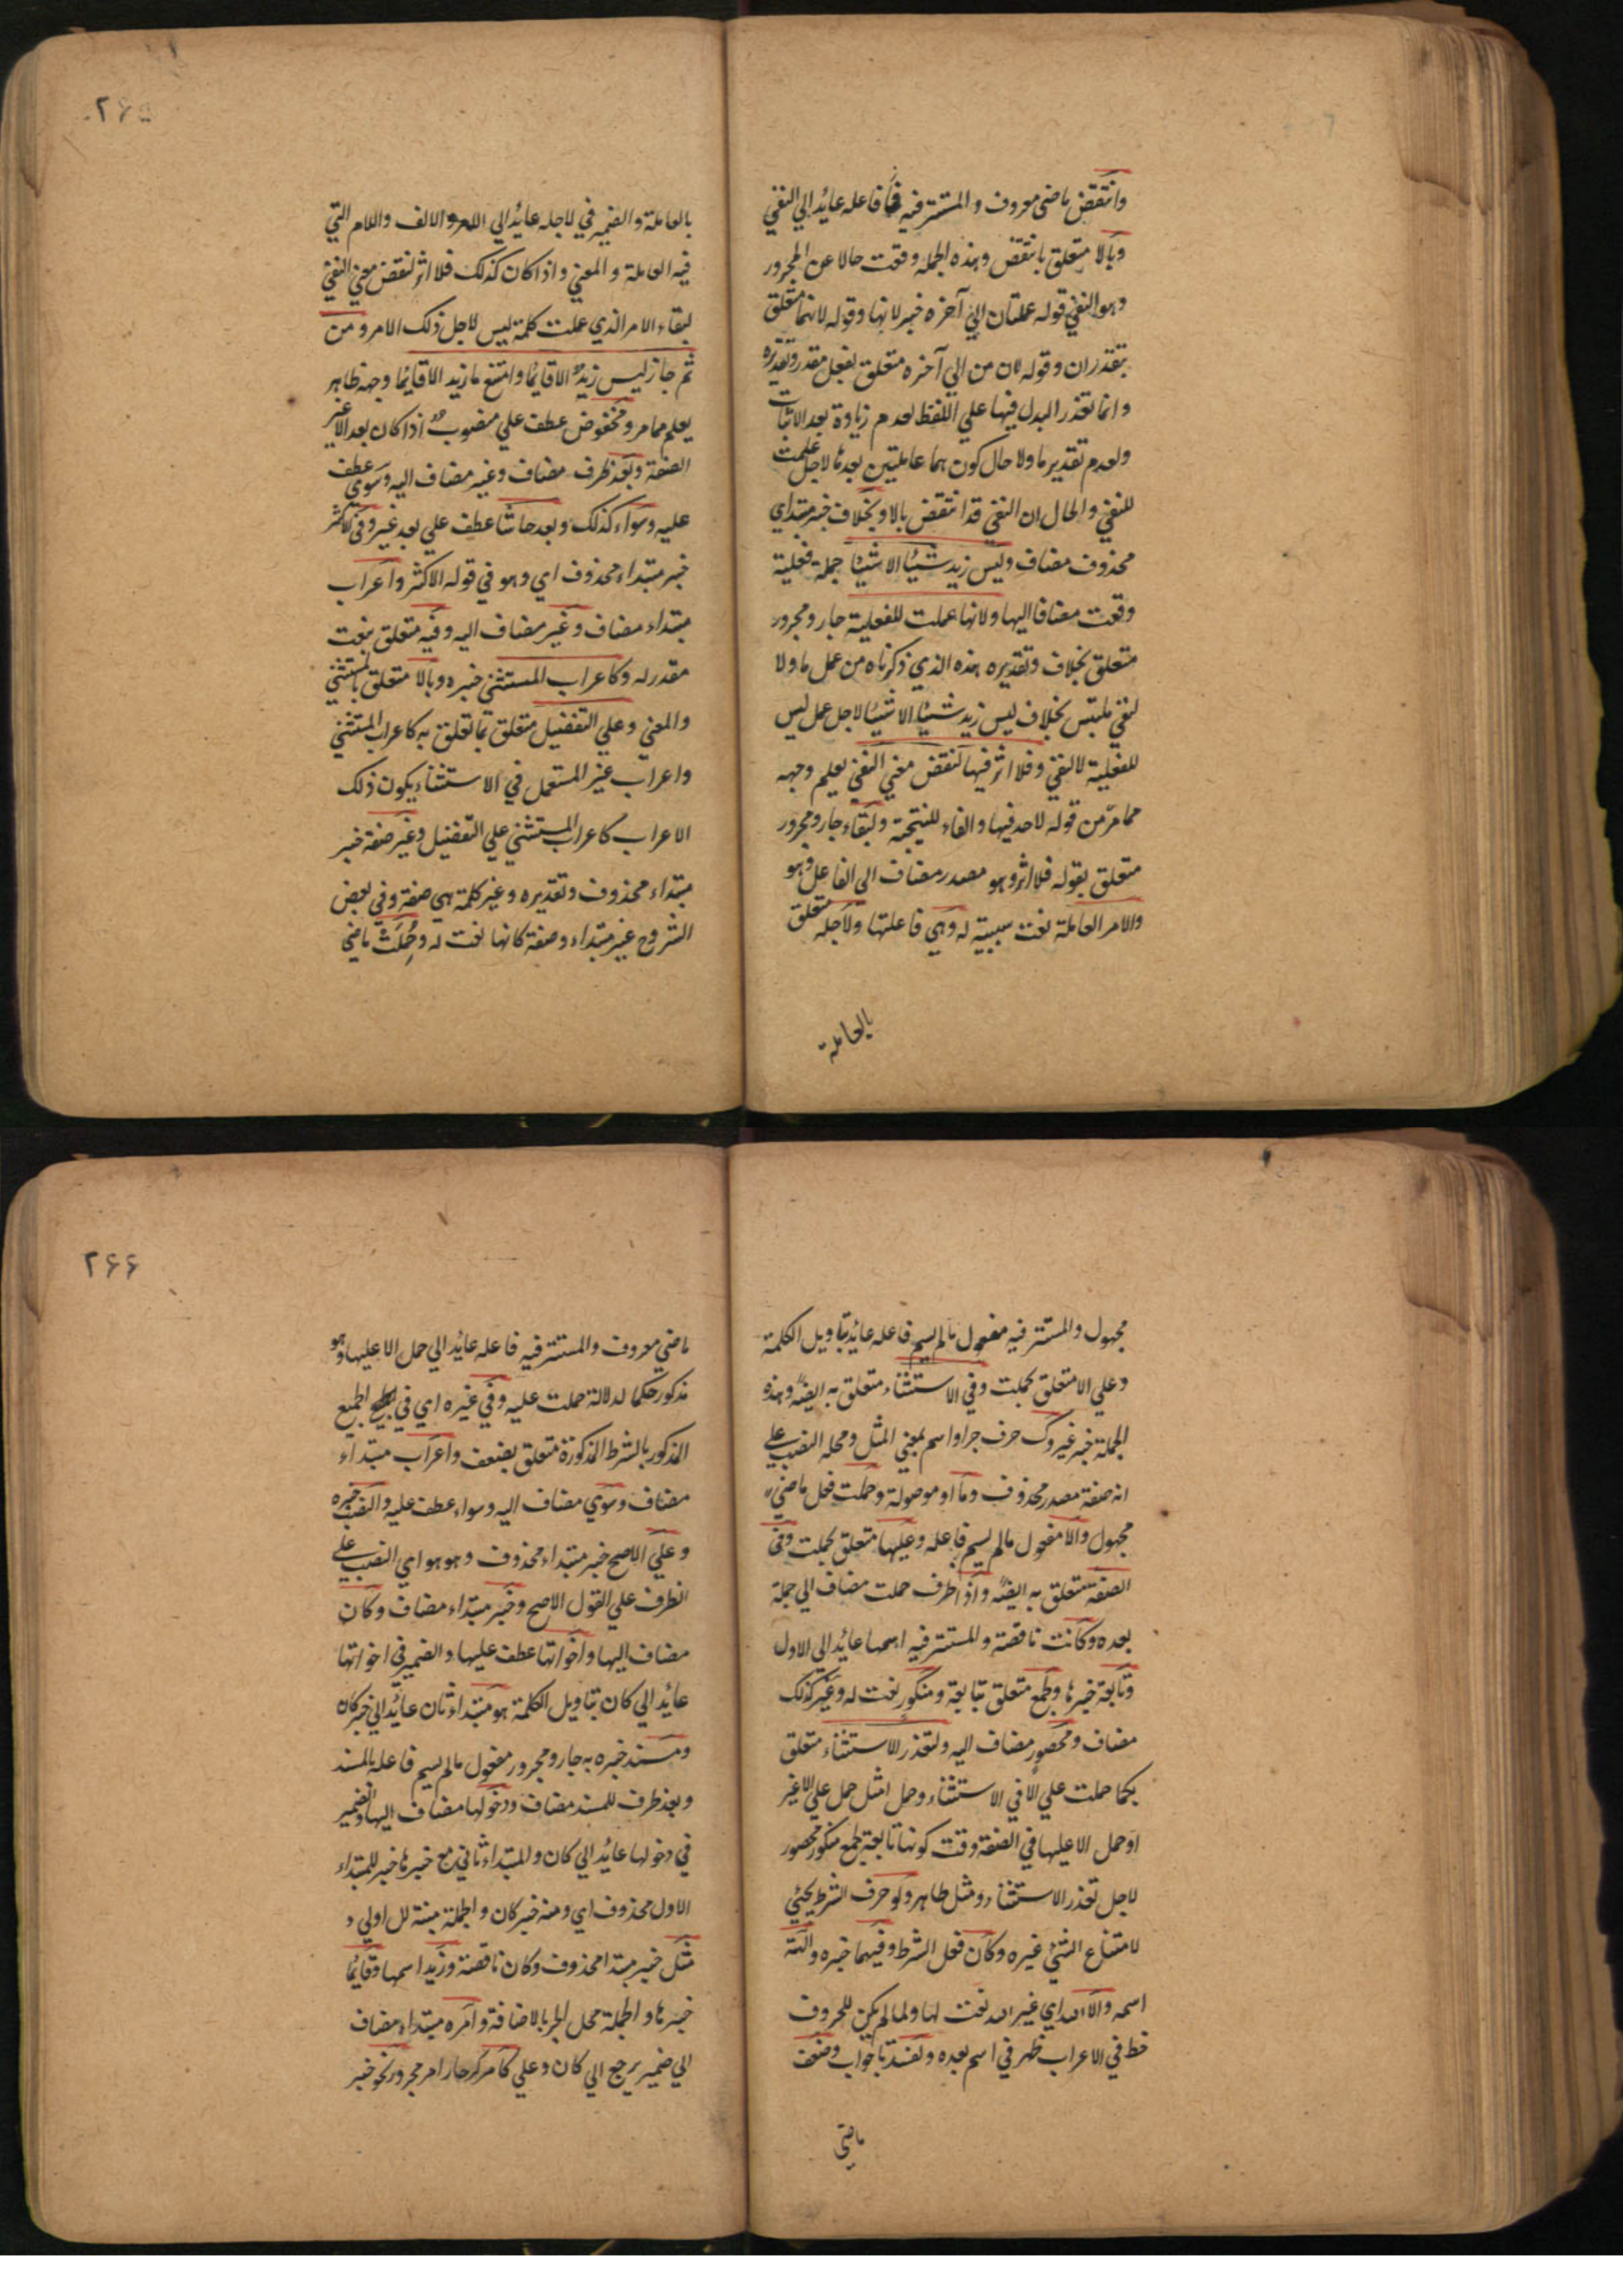 وانتقض ماضي معروف والمستتر فيه فاعله عايد الي النفي
وبالا متعلق بانتقض وهذه الجملة وقعت حالا عن المجرور
وهو النفي قوله عملتان الي آخره خبر لانها وقوله لانهما متعلق
بتقدران وقوله لان من الي آخره متعلق بفعل مقدر وتقديره
وانما تعذر البدل فيها علي اللفظ لعدم زيادة بعد الاثبات
ولعدم تقدير ما ولا حال كون هما عاملتين بعده لاجل عملت
للنفي والحال ان النفي قد انتقض بالا وبخلاف خبر مبتداي
محذوف مضاف وليس زيد شيئا الا شيئا جملة فعلية
وقعت مضافا اليها ولانها عملت للفعلية جار ومجرور
متعلق بخلاف وتقديره هذه الذي ذكرناه من عمل ما ولا
لنفي ملتبس بخلاف ليس زيد شيئا الا شيئا لاجل عمل ليس
للفعلية لا لنفي وفلا اثر فيها لنقض معني النفي يعلم وجهه
مما مر من قوله لا احد فيها والفاء للنتيجة ولبقاء جار ومجرور
متعلق بقوله فلا اثر وهو مصدر مضاف الي الفاعل وهو
والامر العاملة نعت سببية له وهي فاعلتها ولاجله متعلق
بالعاملة
۲۶۵
بالعاملة والضمير في لاجله عايد الي الامر والالف واللام التي
فيه العاملة والمعني واذا كان كذلك فلا اثر لنقض معني النفي
لبقاء الامر الذي عملت كلمة ليس لاجل ذلك الامر ومن
ثم جاز ليس زيد الا قايما وامتنع ما زيد الا قايما وجهه ظاهر
يعلم مما مر ومخفوض عطف علي منصوب اذا كان بعد الا غير
الصفة وبعد ظرف مضاف وغير مضاف اليه وسوي عطف
عليه وسواء كذلك وبعد حاشا عطف علي بعد غير وفي الاكثر
خبر مبتداء محذوف اي وهو في قوله الاكثر واعراب
مبتداء مضاف وغير مضاف اليه وفيه متعلق بنعت
مقدر له وكاعراب المستثني خبره وبالا متعلق بالمستثني
والمعني وعلي التفضيل متعلق بما تعلق به كاعراب المستثني
واعراب غير المستعمل في الاستثناء يكون ذلك
الاعراب كاعراب المستثني علي التفضيل وغير صفة خبر
مبتداء محذوف وتقديره وغير كلمة هي صفة وفي بعض
الشروح غير مبتداء وصفة كانها نعت له وحملت ماضي
مجهول والمستتر فيه مفعول ما لم يسم فاعله عايد بتاويل الكلمة
وعلي الا متعلق بحملت وفي الاستثناء متعلق به ايضا وهذه
الجملة خبر غير وك حرف جر او اسم بمعني المثل ومحله النصب علي
انه صفة مصدر محذوف وما او موصولة وحملت فعل ماضي
مجهول والا مفعول ما لم يسم فاعله وعليها متعلق بحملت وفي
الصفة متعلق به ايضا واذا ظرف حملت مضاف الي جملة
بعده وكانت ناقصة والمستتر فيه اسمها عايد الي الاول
وتابعة خبرها ولجمع متعلق بتابعة ومنكور نعت له وغير كذلك
مضاف ومحصور مضاف اليه ولتعذر الاستثناء متعلق
بكما حملت علي الا في الاستثناء وحمل امثل حمل علي الا غير
او حمل الا عليها في الصفة وقت كونها تابعة لجمع منكور محصور
لاجل تعذر الاستثناء ومثل ظاهر ولو حرف الشرط يجئ
لامتناع الشئ غيره وكان فعل الشرط وفيهما خبره وآلهة
اسمه والا الله اي غير الله نعت لها ولما لم يكن للحروف
خط في الاعراب ظهر في اسم بعده ولفسدتا جواب وضعف
ماضي
۲۶۶
ماضي معروف والمستتر فيه فاعله عايد الي حمل الا عليها وهو
مذكور حكما لدلالة حملت عليه وفي غيره اي في الجمع
المذكور بالشرط المذكورة متعلق بضعف واعراب مبتداء
مضاف وسوي مضاف اليه وسواء عطف عليه والنصب خبره
وعلي الاصح خبر مبتداء محذوف وهو هو اي النصب علي
الظرف علي القول الاصح وخبر مبتداء مضاف وكان
مضاف اليها واخواتها عطف عليها والضمير في اخواتها
عايد الي كان بتاويل الكلمة هو مبتداء ثان عايد الي خبر كان
ومسند خبره به جار ومجرور مفعول ما لم يسم فاعله بالمسند
وبعد ظرف للمسند مضاف ودخولها مضاف اليها والضمير
في دخولها عايد الي كان والمبتداء ثاني مع خبرها خبر للمبتداء
الاول محذوف اي ومنه خبر كان والجملة مبينة للاولي و
مثل خبر مبتدا محذوف وكان ناقصة وزيد اسمها وقايما
خبرها والجملة محل الجر بالاضافة وامره مبتداء مضاف
الي ضمير يرجع الي كان وعلي كامر جار امر مجرور نحو خبر